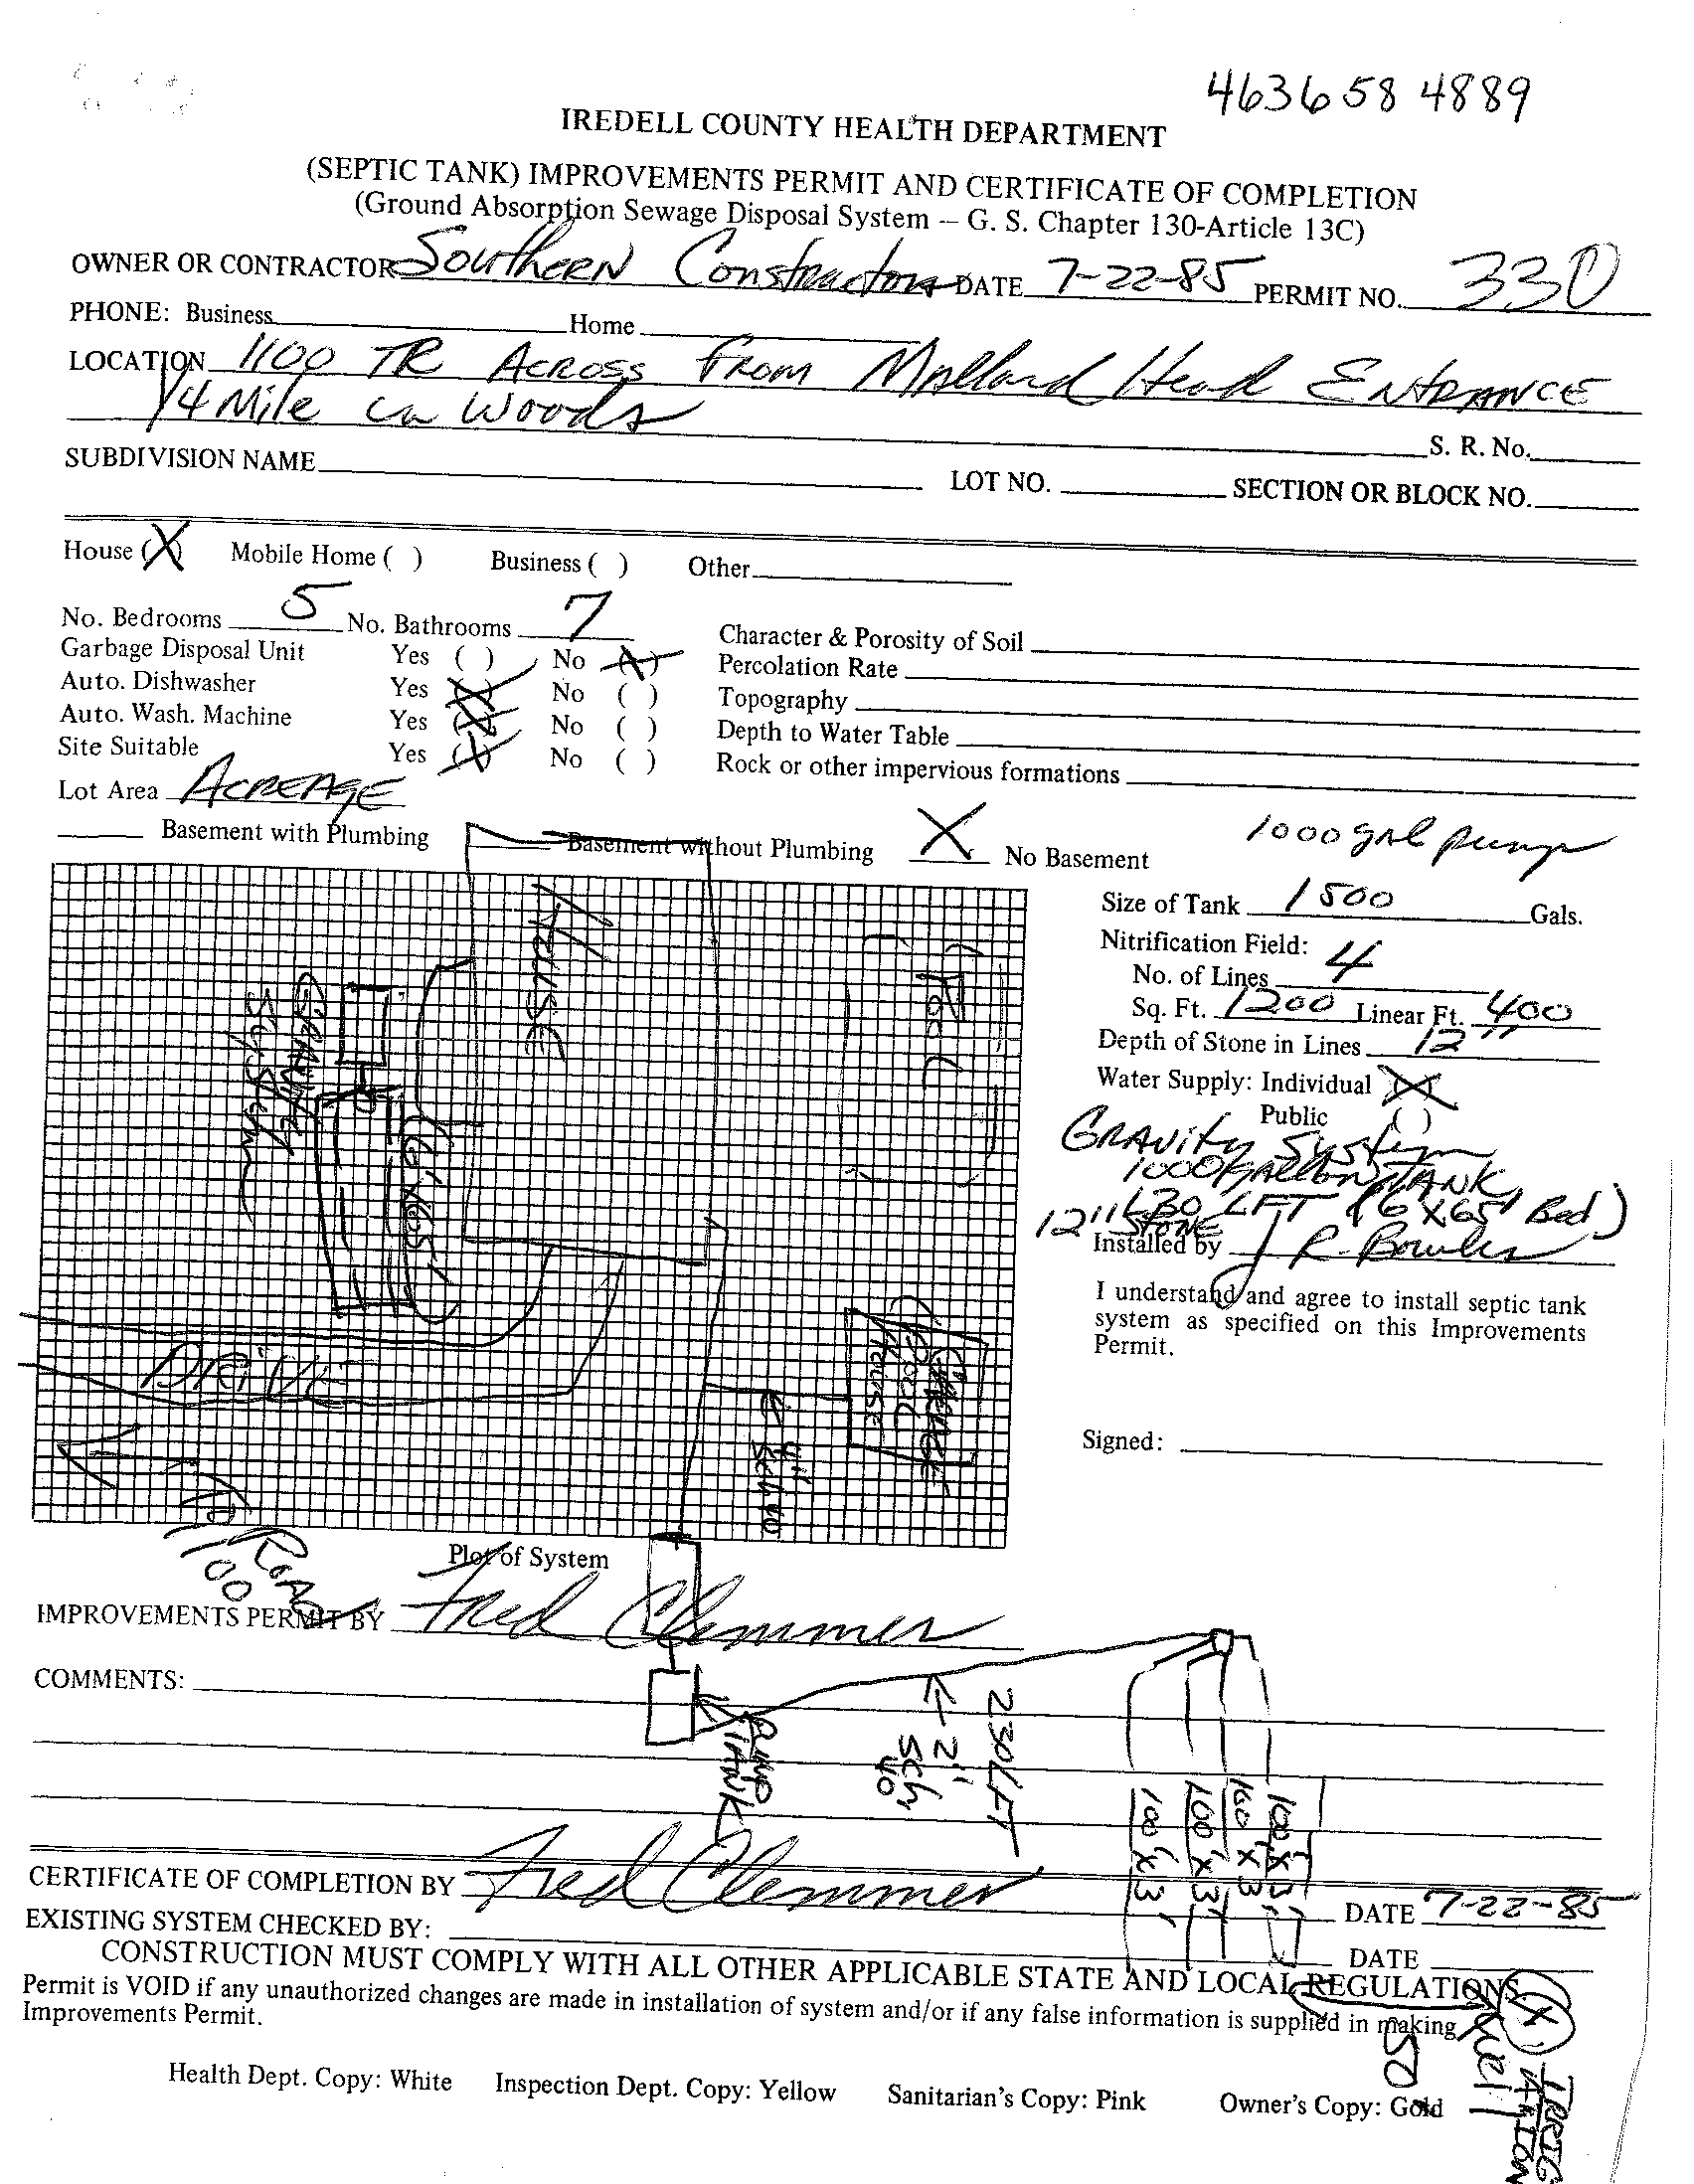 4636 58 4889
IREDELL COUNTY HEALTH DEPARTMENT
(SEPTIC TANK) IMPROVEMENTS PERMIT AND CERTIFICATE OF COMPLETION
(Ground Absorption Sewage Disposal System – G. S. Chapter 130-Article 13C)
OWNER OR CONTRACTOR Southern Constructors DATE 7-22-85 PERMIT NO. 330
PHONE: Business Home
LOCATION 1100 TR Across From Mallard Head ENTRANCE
1/4 Mile in Woods
S. R. No.
SUBDIVISION NAME LOT NO. SECTION OR BLOCK NO.
House (X) Mobile Home ( ) Business ( ) Other
No. Bedrooms 5 No. Bathrooms 7 Character & Porosity of Soil
Garbage Disposal Unit Yes ( ) No (X) Percolation Rate
Auto. Dishwasher Yes (X) No ( ) Topography
Auto. Wash. Machine Yes (X) No ( ) Depth to Water Table
Site Suitable Yes (X) No ( ) Rock or other impervious formations
Lot Area ACREAGE
Basement with Plumbing Basement without Plumbing X No Basement
1000 gal pump
Size of Tank 1500 Gals.
Nitrification Field:
No. of Lines 4
Sq. Ft. 1200 Linear Ft. 400
Depth of Stone in Lines 12"
Water Supply: Individual (X)
Public ( )
GRAVITY System
1000 GALLON TANK
12" STONE 130 LFT (6 X 65' Bed)
Installed by J R Bowles
I understand and agree to install septic tank
system as specified on this Improvements
Permit.
Signed:
HOUSE
POOL
GRAVITY
System
6' X 65'
DRIVE
POOL
HOUSE
4" Sch 40
Road
1100
Plot of System
IMPROVEMENTS PERMIT BY Fred Clemmer
COMMENTS:
PUMP
TANK
2"
Sch 40
230 LFT
100' X 3'
100' X 3'
100' X 3'
100' X 3'
CERTIFICATE OF COMPLETION BY Fred Clemmer DATE 7-22-85
EXISTING SYSTEM CHECKED BY: DATE
CONSTRUCTION MUST COMPLY WITH ALL OTHER APPLICABLE STATE AND LOCAL REGULATIONS.
Permit is VOID if any unauthorized changes are made in installation of system and/or if any false information is supplied in making
Improvements Permit.
50
Well
IRRIG
ATION
Health Dept. Copy: White Inspection Dept. Copy: Yellow Sanitarian's Copy: Pink Owner's Copy: Gold